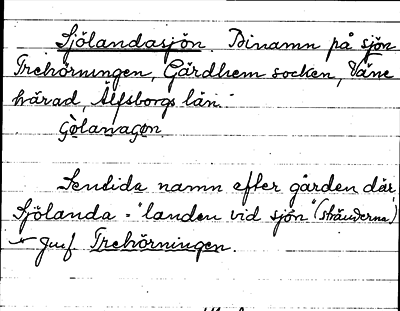 Sjölandasjön. Binamn på sjön
Trehörningen, Gärdhem socken, Väne
härad, Älfsborgs län.
Gölanagen.
Sentida namn efter gården där,
Sjölanda = "landen vid sjön" (stränderna)
Jmf Trehörningen.